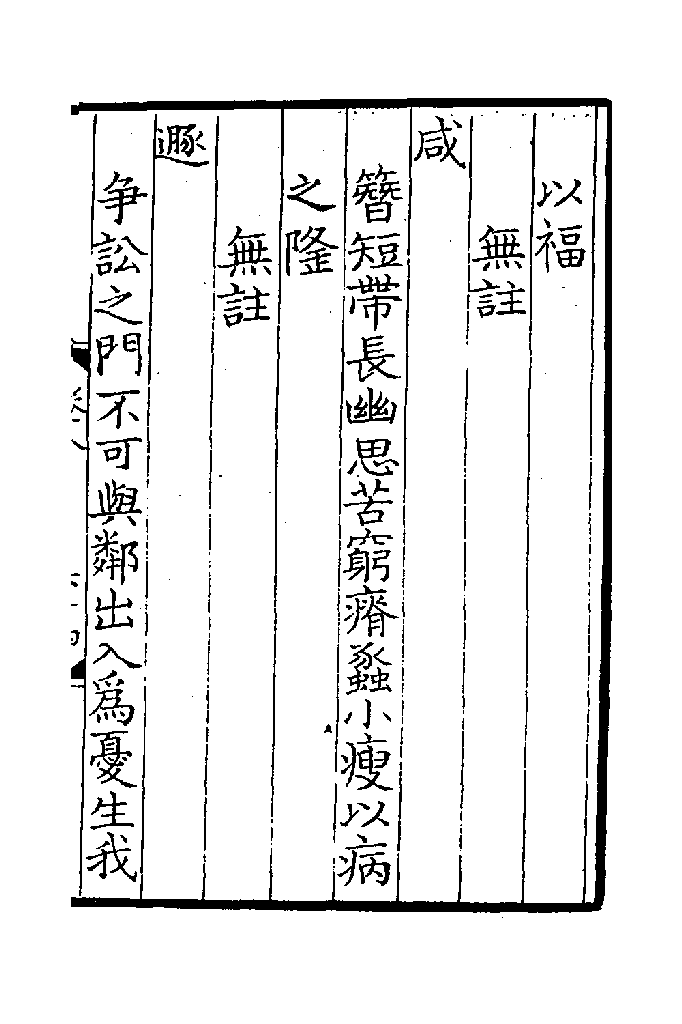 以福
無註
咸
簪短帶長幽思苦窮瘠蠡小瘦以病
之隆
無註
遯
争訟之門不可與鄰出入爲憂生我